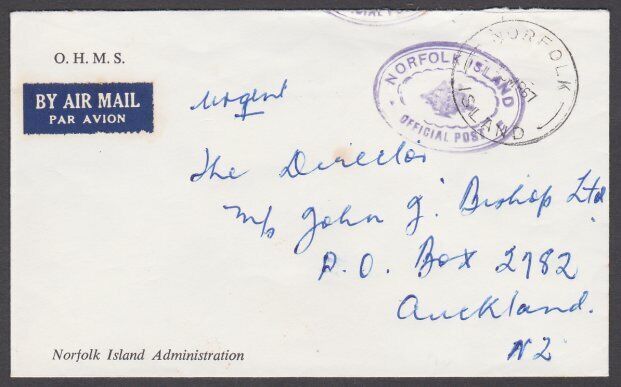 O. H. M. S.
BY AIR MAIL
PAR AVION
NORFOLK ISLAND
OFFICIAL POST
NORFOLK ISLAND
1967
Urgent
The Director
M/s John J. Bishop Ltd
P.O. Box 2782
Auckland.
NZ
Norfolk Island Administration